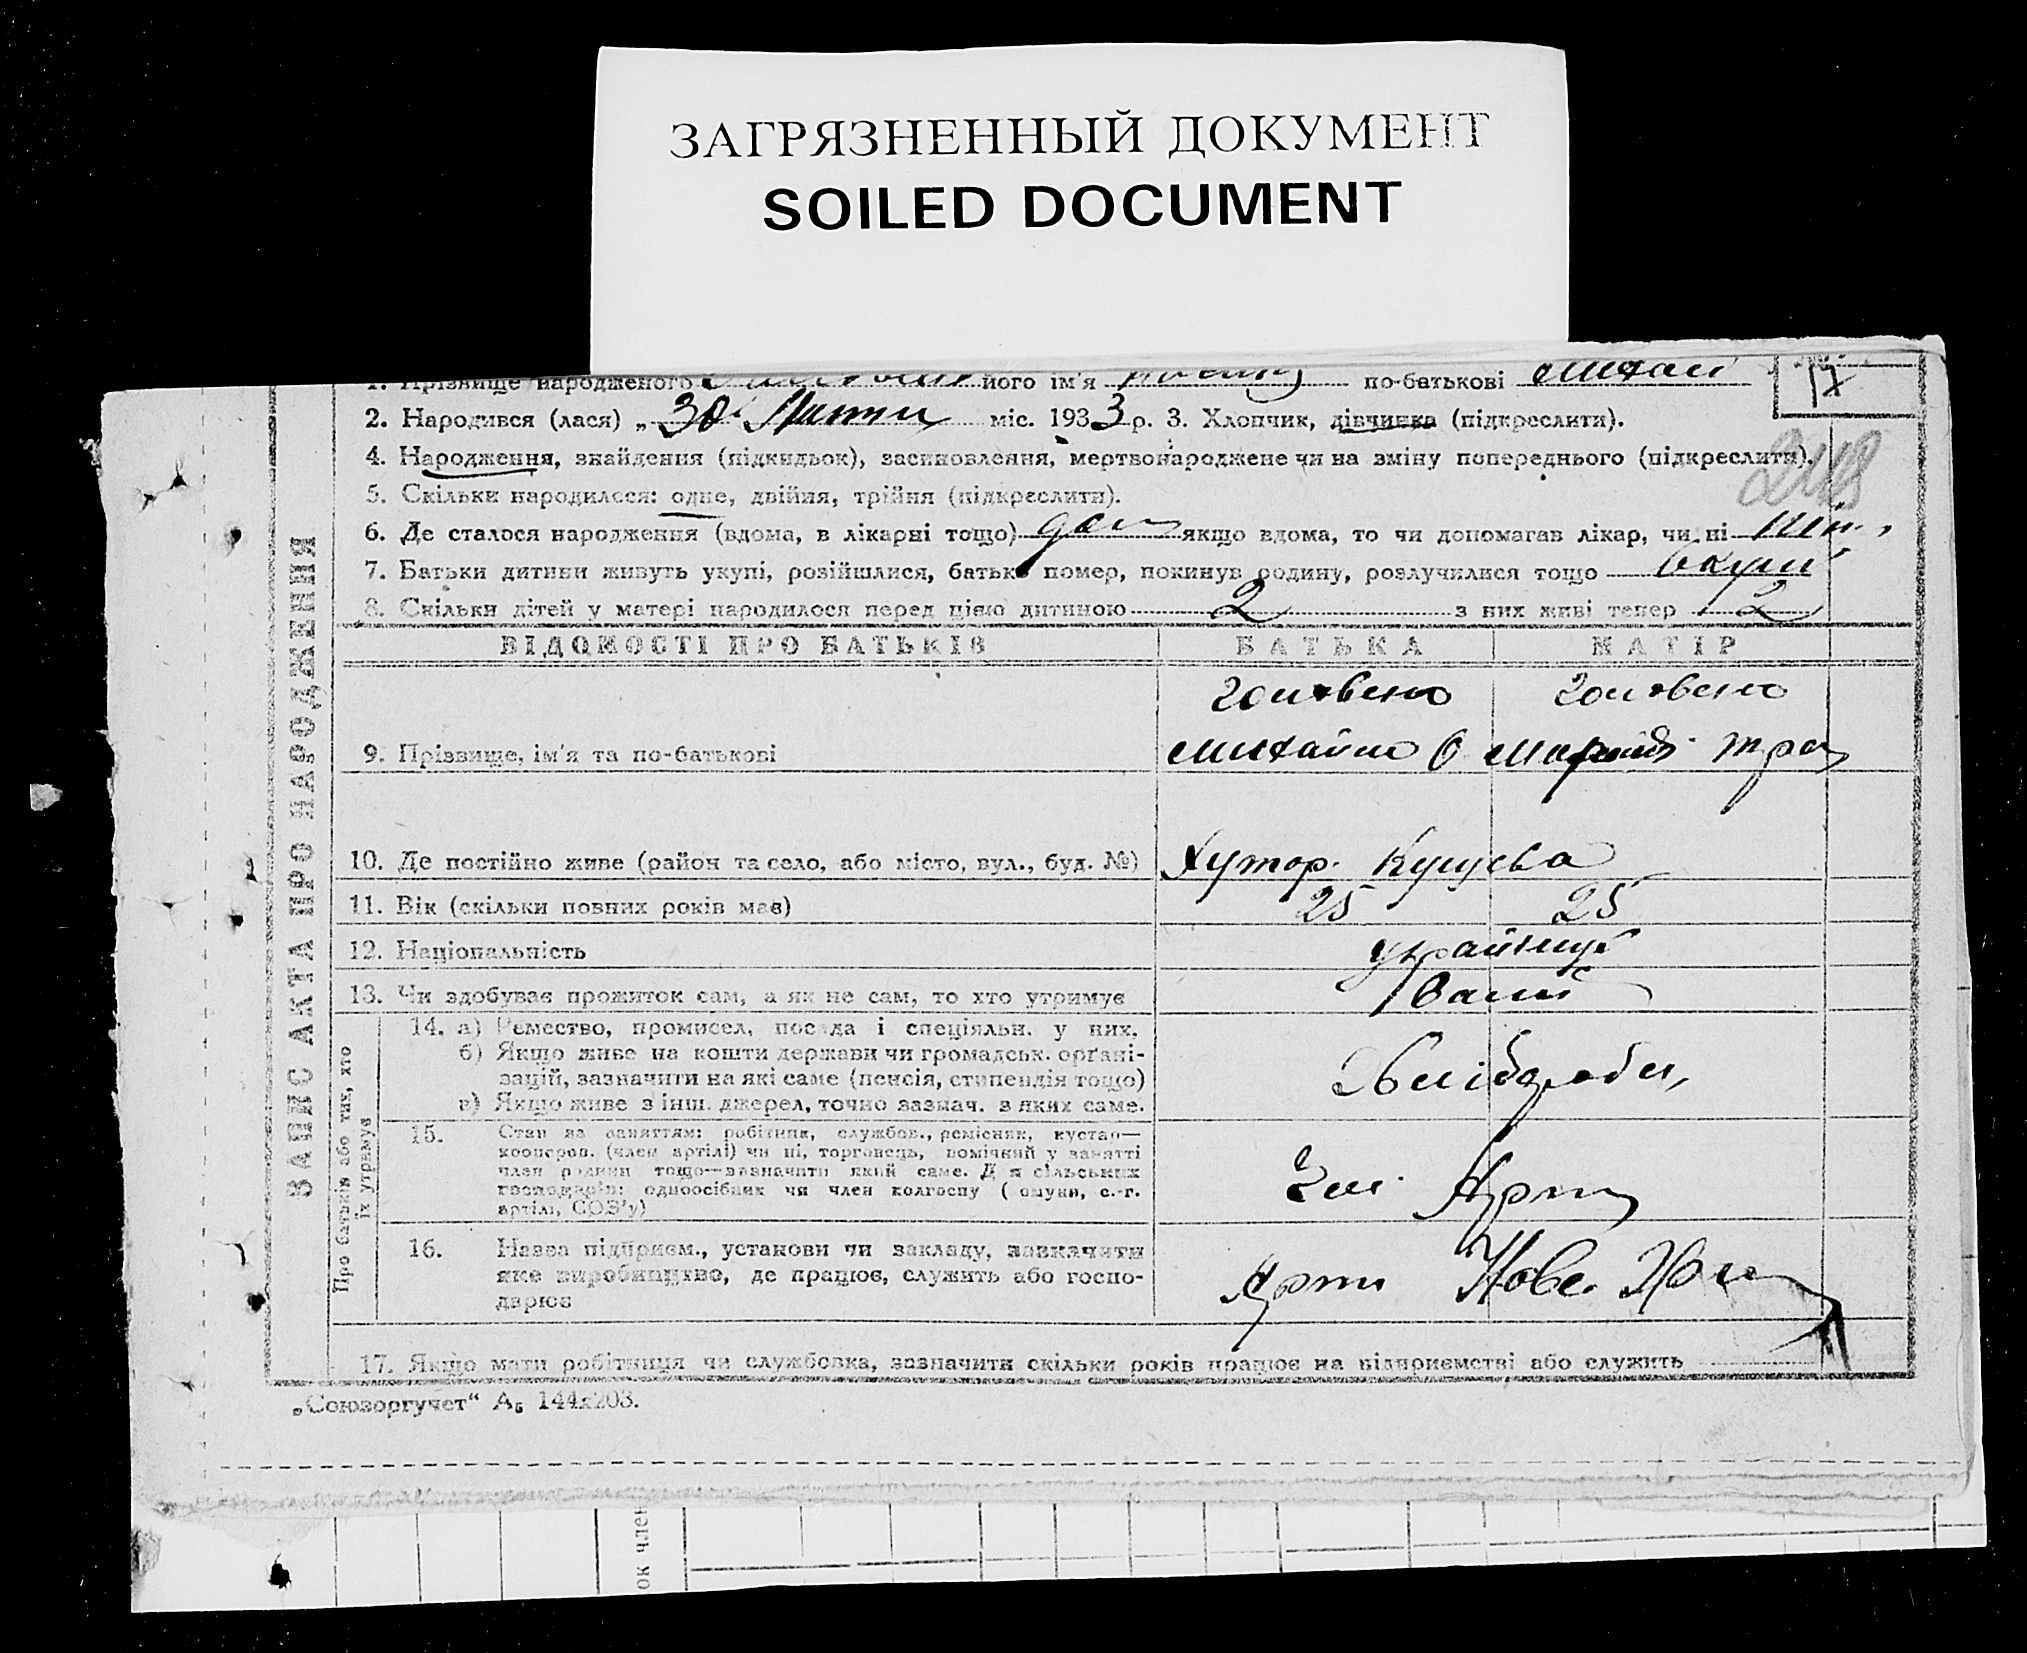 ЗАГРЯЗНЕННЫЙ ДОКУМЕНТ
SOILED DOCUMENT
1. Прізвище народженого його ім'я по-батькові Михай 17
2. Народився (лася) „30 міс. 1933 р. 3. Хлопчик, дівчинка (підкреслити).
4. Народження, знайдення (підкидьок), засиновлення, мертвонароджене чи на зміну попереднього (підкреслити).
5. Скільки народилося: одне, двійня, трійня (підкреслити).
6. Де сталося народження (вдома, в лікарні тощо) дом якщо вдома, то чи допомагав лікар, чи ні
7. Батьки дитини живуть укупі, розійшлися, батько помер, покинув родину, розлучилися тощо вкупі
8. Скільки дітей у матері народилося перед цією дитиною 2 з них живі тепер 2
ЗАПИС АКТА ПРО НАРОДЖЕННЯ
ВІДОМОСТІ ПРО БАТЬКІВ БАТЬКА МАТІР
9. Прізвище, ім'я та по-батькові Михайло
10. Де постійно живе (район та село, або місто, вул., буд. №) Хутор
11. Вік (скільки повних років має) 25 25
12. Національність українці
13. Чи здобуває прожиток сам, а як не сам, то хто утримує
Про батьків або тих, хто
їх утримує
14. а) Ремество, промисел, посада і спеціяльн. у них.
б) Якщо живе на кошти держави чи громадськ. органі-
зацій, зазначити на які саме (пенсія, стипендія тощо)
в) Якщо живе з інш. джерел, точно зазнач. з яких саме.
Хлібороби
15. Стан за заняттям: робітник, службов., ремісник, кустар—
кооперов. (член артілі) чи ні, торговець, помічний у занятті
член родини тощо—зазначити який саме. Для сільських
господарів: одноосібник чи член колгоспу (комуни, с.-г.
артілі, СОЗ'у)
16. Назва підприєм., установи чи закладу, зазначити
яке виробництво, де працює, служить або госпо-
дарює
17. Якщо мати робітниця чи службовка, зазначити скільки років працює на підприємстві або служить
„Союзоргучет“ А₅ 144х203.
ок член